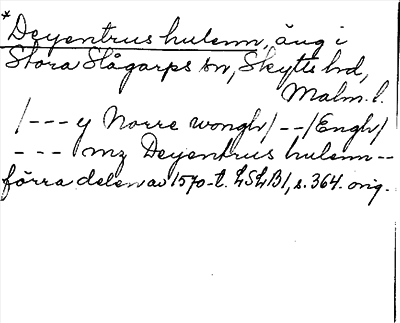 *Deyentrus hulenn, äng i
Stora Slågarps sn, Skytts hd,
Malm. l.
/--- y Norre wongh/--/Engh/
--- mz Deyentrus hulenn--
förra delen av 1570-t. LSLB1, s. 364. orig.